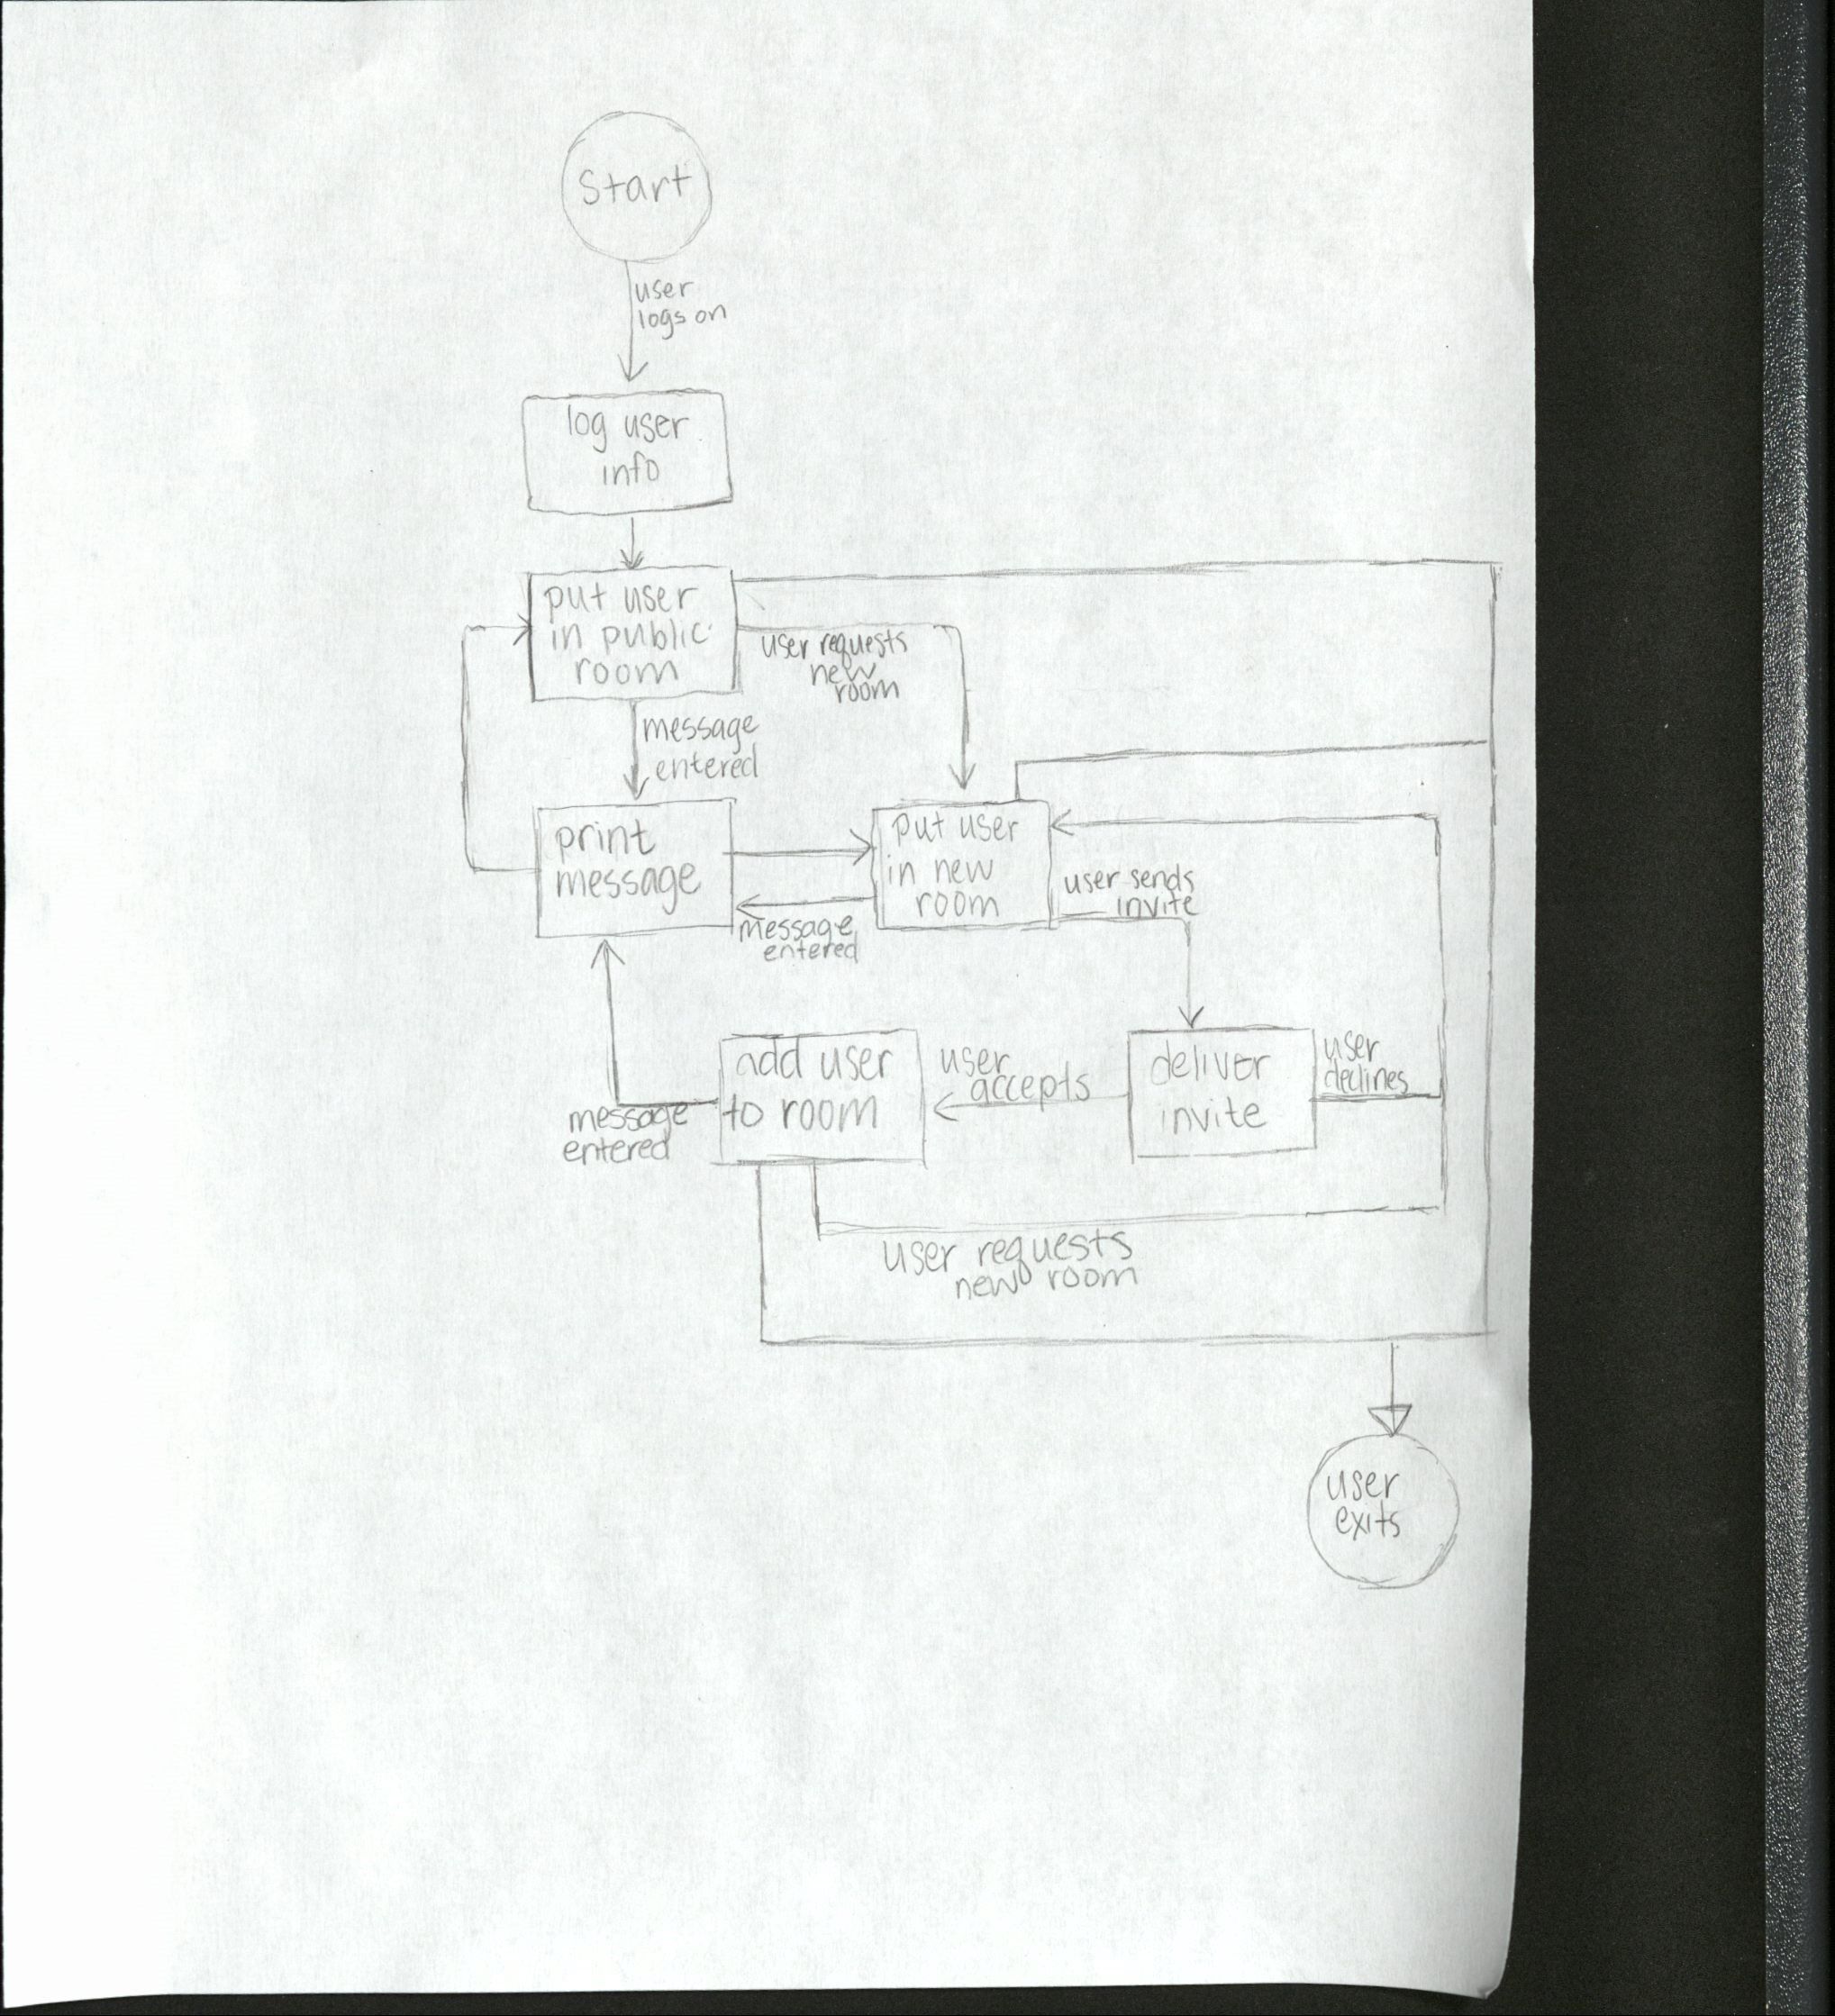 Start
user
logs on
log user
info
put user
in public
room
user requests
new
room
message
entered
print
message
put user
in new
room
user sends
invite
message
entered
add user
to room
user
accepts
deliver
invite
user
declines
message
entered
user requests
new room
user
exits